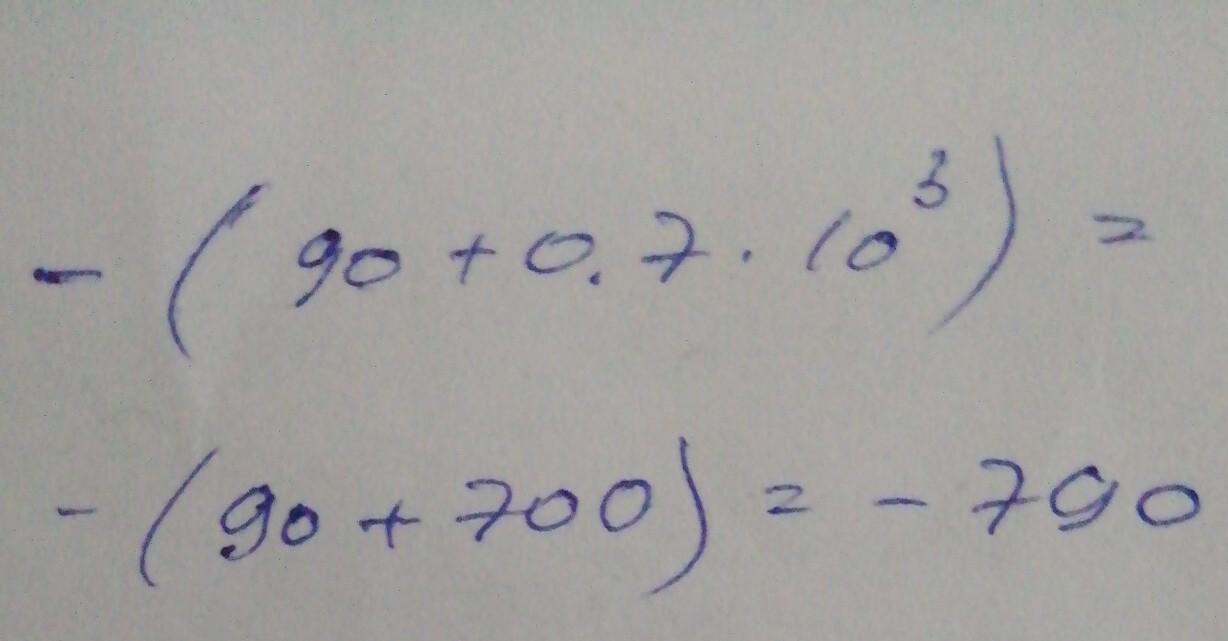 - ( 90 + 0.7 · 10³ ) =
- ( 90 + 700 ) = - 790